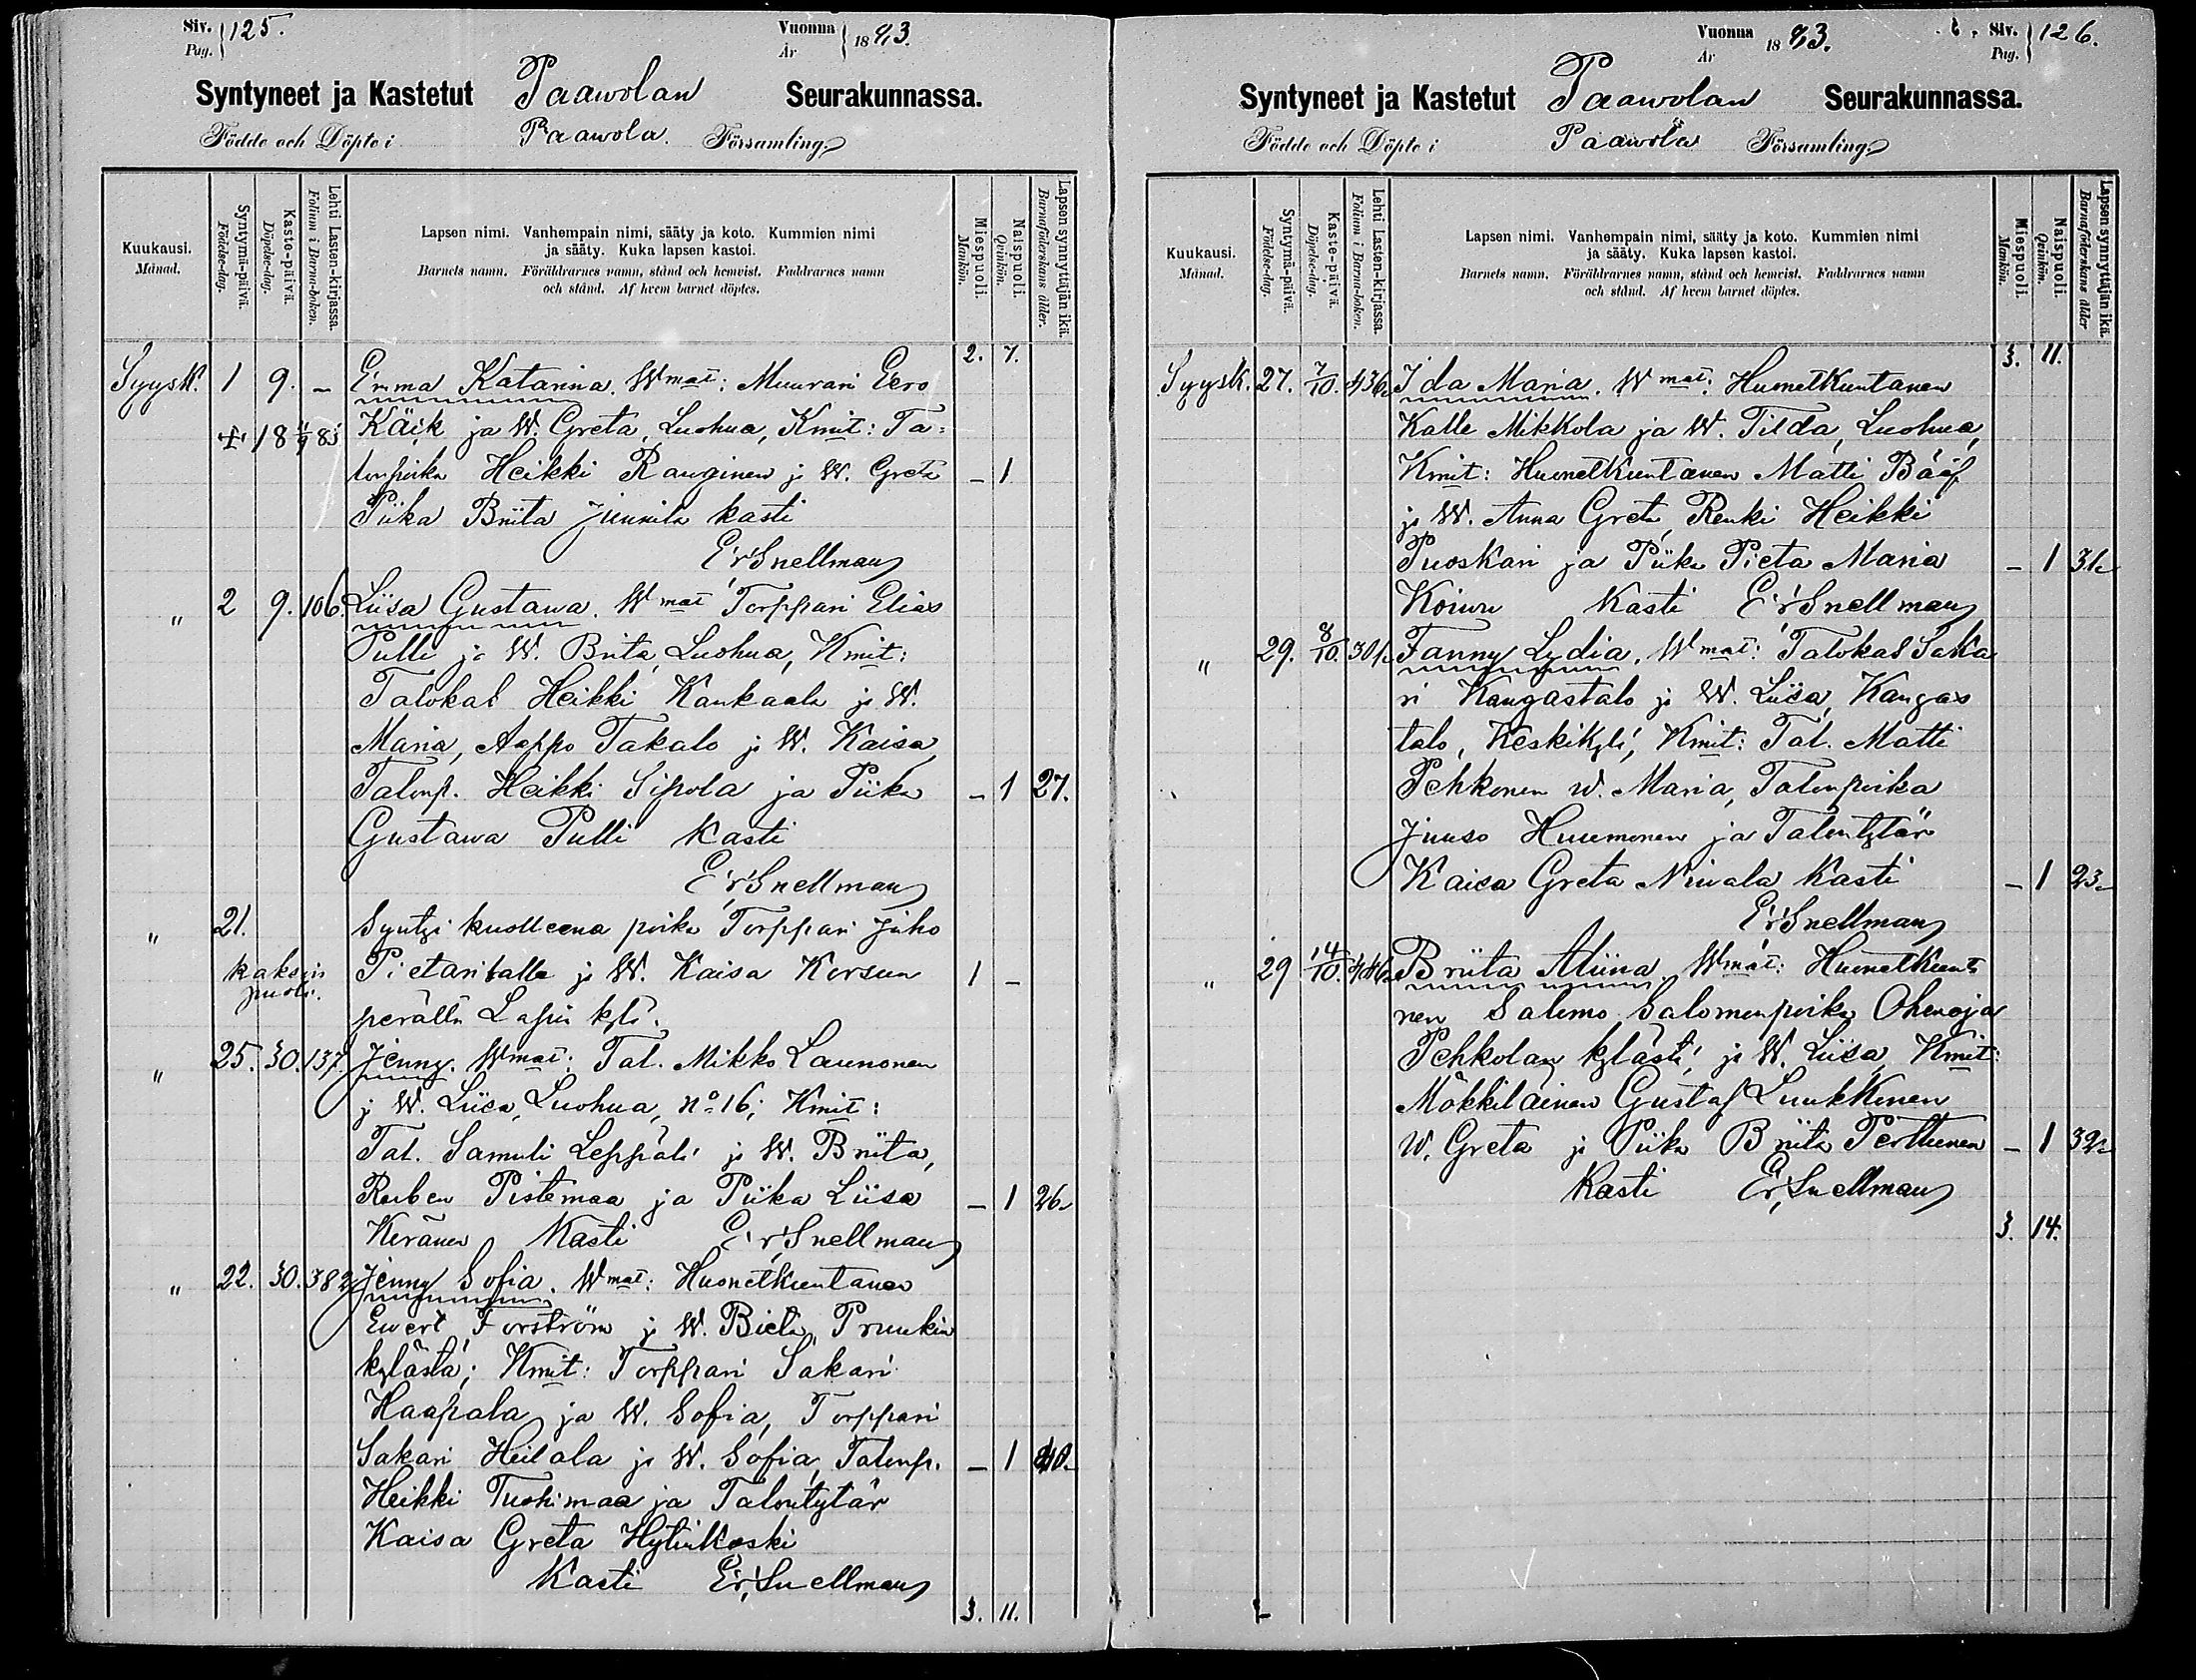 Siv. Pag. 125.
Vuonna År 1893.
Syntyneet ja Kastetut Paawolan Seurakunnassa.
Födde och Döpte i Paawola. Församling
Kuukausi. Månad.
Syntymä-päivä. Födelse-dag.
Kaste-päivä. Döpelse-dag.
Lehti Lasten-kirjassa. Folium i Barna-boken.
Lapsen nimi. Vanhempain nimi, sääty ja koto. Kummien nimi
ja sääty. Kuka lapsen kastoi.
Barnets namn. Föräldrarnes namn, stånd och hemvist. Faddrarnes namn
och stånd. Af hvem barnet döptes.
Miespuoli. Mankön.
Naispuoli. Qvinkön.
Lapsen synnyttäjän ikä. Barnaföderskans ålder.
2. 7.
Syysk. 1 9. – Emma Katarina. Wmat: Muurari Eero
Käck ja W. Greta, Luohua, Kmit: Ta=
lonpoika Heikki Rauginen j W. Greta – 1
Piika Briita Junnila kasti
Er Snellman
" 2 9. 106. Liisa Gustawa. Wmat Torppari Elias
Pulli ja W. Brita, Luohua, Kmit:
Talokas Heikki Kankaala j W.
Maria, Aappo Takalo j W. Kaisa,
Talonp. Heikki Sipola ja Piika – 1 27.
Gustawa Pulli kasti
Er Snellman
" 21. Syntyi kuolleena poika Torppari Juho
kaksin Pietaritalla j W. Kaisa Korsun 1 –
puoli. perällä Lapin kylä.
" 25. 30. 137. Jenny. Wmat: Tal. Mikko Launonen
j W. Liisa, Luohua, no 16; Kmit:
Tal. Samuli Leppälä j W. Briita,
Ruben Pistemaa ja Piika Liisa – 1 26.
Keränen Kasti Er Snellman
" 22. 30. 382 Jenny Sofia. Wmat: Huonetkuntanen
Ewert Forström j W. Bieta, Pruukin
kylästä; Kmit: Torppari Sakari
Haapala ja W. Sofia, Torppari
Sakari Heilala j W. Sofia, Talonp. – 1 40.
Heikki Tuohimaa ja Talontytär
Kaisa Greta Hytinkoski
Kasti Er Snellman
3. 11.
Vuonna År 1893.
Siv. Pag. 126.
Syntyneet ja Kastetut Paawolan Seurakunnassa.
Födde och Döpte i Paawola Församling
Kuukausi. Månad.
Syntymä-päivä. Födelse-dag.
Kaste-päivä. Döpelse-dag.
Lehti Lasten-kirjassa. Folium i Barna-boken.
Lapsen nimi. Vanhempain nimi, sääty ja koto. Kummien nimi
ja sääty. Kuka lapsen kastoi.
Barnets namn. Föräldrarnes namn, stånd och hemvist. Faddrarnes namn
och stånd. Af hvem barnet döptes.
Miespuoli. Mankön.
Naispuoli. Qvinkön.
Lapsen synnyttäjän ikä. Barnaföderskans ålder
3. 11.
Syysk. 27. 7/10. 436 Ida Maria. Wmat: Huonetkuntanen
Kalle Mikkola ja W. Tilda, Luohua,
Kmit: Huonetkuntanen Matti Bååf
ja W. Anna Greta, Renki Heikki
Puoskari ja Piika Pieta Maria – 1 31
Koiwu Kasti Er Snellman
" 29. 8/10. 301 Fanny Lydia. Wmat: Talokas Saka
ri Kangastalo j W. Liisa, Kangas
talo, Keskikylä, Kmit: Tal. Matti
Pehkonen W. Maria, Talonpoika
Juuso Huumonen ja Talontytär
Kaisa Greta Niwala Kasti – 1 23
Er Snellman
" 29 14/10. 446 Briita Aliina. Wmat: Huonetkunta
nen Salomo Salomonpoika Ohenoja
Pehkolan kylästä, j W. Liisa, Kmit:
Mökkiläinen Gustaf Luukkonen
W. Greta j Piika Briita Perttunen – 1 32
Kasti Er Snellman
3. 14.